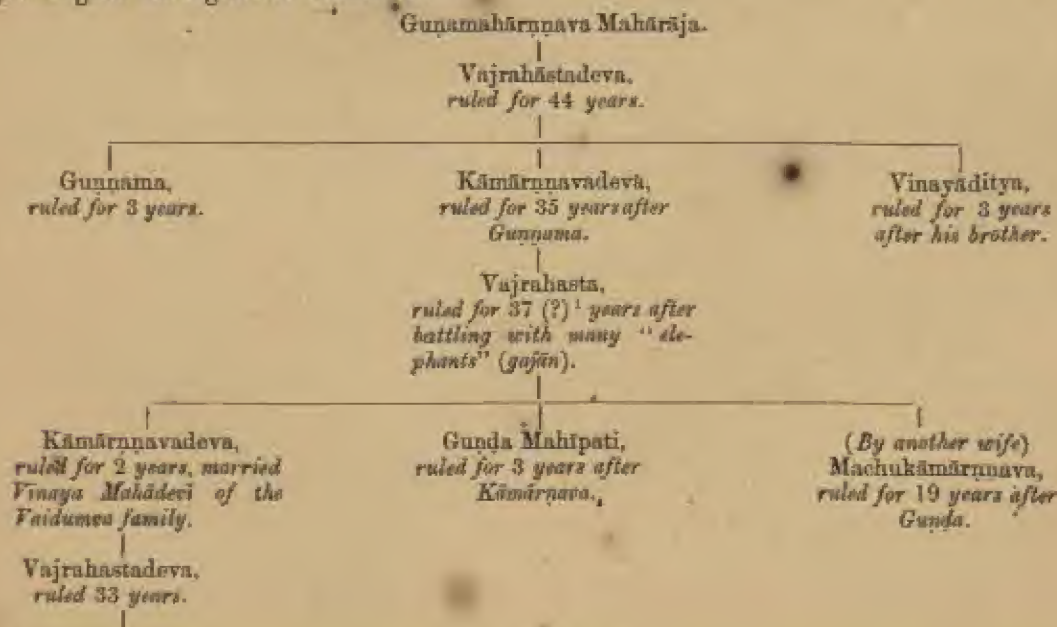 Guṇamahārṇṇava Mahārāja.
Vajrahāstadeva,
ruled for 44 years.
Guṇṇama,
ruled for 3 years.
Kāmārṇṇavadeva,
ruled for 35 years after
Guṇṇama.
Vinayāditya,
ruled for 3 years
after his brother.
Vajrahasta,
ruled for 37 (?)¹ years after
battling with many "ele-
phants" (gajān).
Kāmārṇṇavadeva,
ruled for 2 years, married
Vinaya Mahādevi of the
Vaidumva family.
Guṇḍa Mahīpati,
ruled for 3 years after
Kāmārṇava.
(By another wife)
Machukāmārṇṇava,
ruled for 19 years after
Guṇḍa.
Vajrahastadeva,
ruled 33 years.